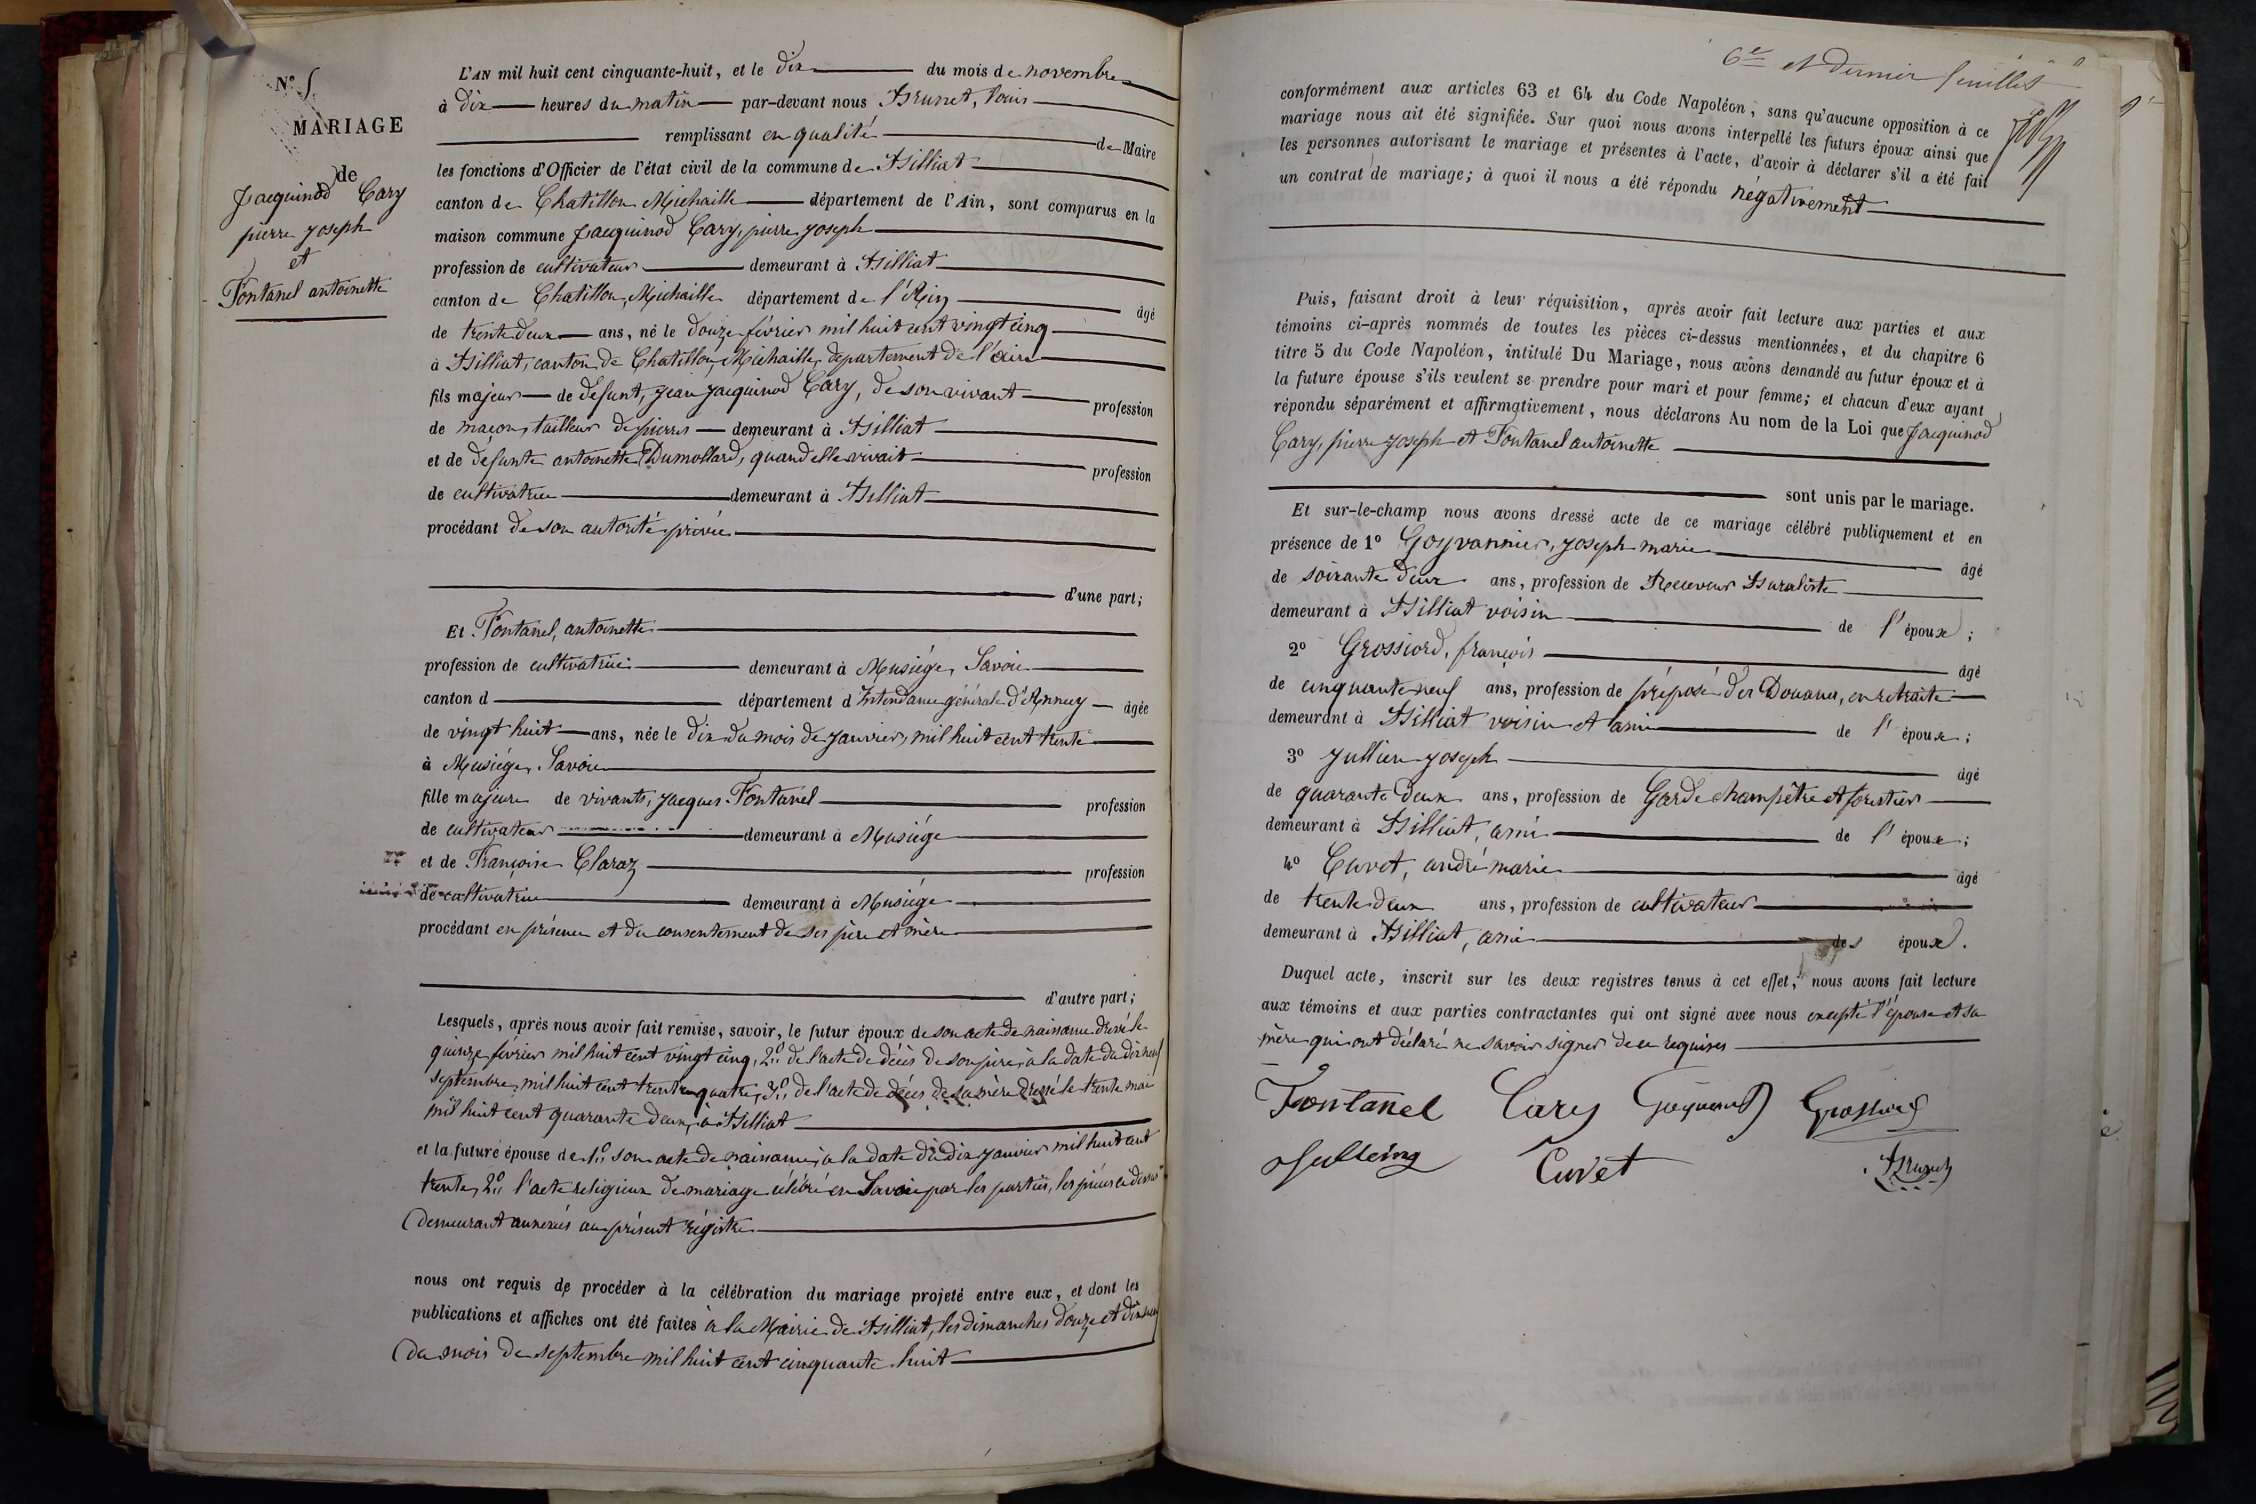 N.º 5.
MARIAGE
de
Jacquinod Cary
pierre joseph
et
Fontanel antoinette
L'AN mil huit cent cinquante-huit, et le dix du mois de novembre
à dix heures du matin par-devant nous Brunet, louis
remplissant en qualité de Maire
les fonctions d'Officier de l'état civil de la commune de Billiat
canton de Chatillon Michaille département de l'Ain, sont comparus en la
maison commune Jacquinod Cary, pierre joseph
profession de cultivateur demeurant à Billiat
canton de Chatillon, Michaille département de l'Ain âgé
de trente deux ans, né le douze février mil huit cent vingt cinq
à Billiat, canton de Chatillon, Michaille, département de l'ain
fils majeur de défunt, jean jacquinod Cary, de son vivant profession
de maçon, tailleur de pierres demeurant à Billiat
et de défunte antoinette Dumollard, quand elle vivait profession
de cultivatrice demeurant à Billiat
procédant de son autorité privée
d'une part;
Et Fontanel, antoinette
profession de cultivatrice demeurant à Musiége, Savoie
canton d département d'Intendance générale d'Annecy âgée
de vingt huit ans, née le dix du mois de janvier, mil huit cent trente
à Musiége, Savoie
fille majeure de vivants, jacques Fontanel profession
de cultivateur demeurant à Musiége
et de Françoise Claraz profession
de cultivatrice demeurant à Musiége
procédant en présence et du consentement de ses père et mère
d'autre part;
Lesquels, après nous avoir fait remise, savoir, le futur époux de son acte de naissance dressé le
quinze février mil huit cent vingt cinq, 2º de l'acte de décès de son père, à la date du dix neuf
septembre, mil huit cent trente quatre, 3º de l'acte de décès de sa mère dressé le trente mai
mil huit cent quarante deux, à Billiat
et la future épouse de 1º son acte de naissance, à la date du dix janvier mil huit cent
trente, 2º l'acte religieux de mariage célébré en Savoie par les parties, les pièces ci dessus
demeurant annexées au présent régistre
nous ont requis de procéder à la célébration du mariage projeté entre eux, et dont les
publications et affiches ont été faites à la Mairie de Billiat, les dimanches douze et dix neuf
du mois de septembre mil huit cent cinquante huit
6e et dernier feuillet
conformément aux articles 63 et 64 du Code Napoléon, sans qu'aucune opposition à ce
mariage nous ait été signifiée. Sur quoi nous avons interpellé les futurs époux ainsi que
les personnes autorisant le mariage et présentes à l'acte, d'avoir à déclarer s'il a été fait
un contrat de mariage; à quoi il nous a été répondu négativement
Puis, faisant droit à leur réquisition, après avoir fait lecture aux parties et aux
témoins ci-après nommés de toutes les pièces ci-dessus mentionnées, et du chapitre 6
titre 5 du Code Napoléon, intitulé Du Mariage, nous avons demandé au futur époux et à
la future épouse s'ils veulent se prendre pour mari et pour femme; et chacun d'eux ayant
répondu séparément et affirmativement, nous déclarons Au nom de la Loi que Jacquinod
Cary, pierre joseph et Fontanel antoinette
sont unis par le mariage.
Et sur-le-champ nous avons dressé acte de ce mariage célébré publiquement et en
présence de 1º Goyvannier, joseph marie âgé
de soixante deux ans, profession de Receveur Buraliste
demeurant à Billiat voisin de l'époux;
2º Grossiord, françois âgé
de cinquante neuf ans, profession de préposé des Douanes, en retraite
demeurant à Billiat voisin et ami de l'époux;
3º Jullien joseph âgé
de quarante deux ans, profession de Garde champêtre et forestier
demeurant à Billiat, ami de l'époux;
4º Cuvet, andré marie âgé
de trente deux ans, profession de cultivateur
demeurant à Billiat, ami des époux.
Duquel acte, inscrit sur les deux registres tenus à cet effet, nous avons fait lecture
aux témoins et aux parties contractantes qui ont signé avec nous excepté l'épouse et sa
mère qui ont déclaré ne savoir signer de ce requises
Fontanel Cary Grossiord
Cuvet Brunet